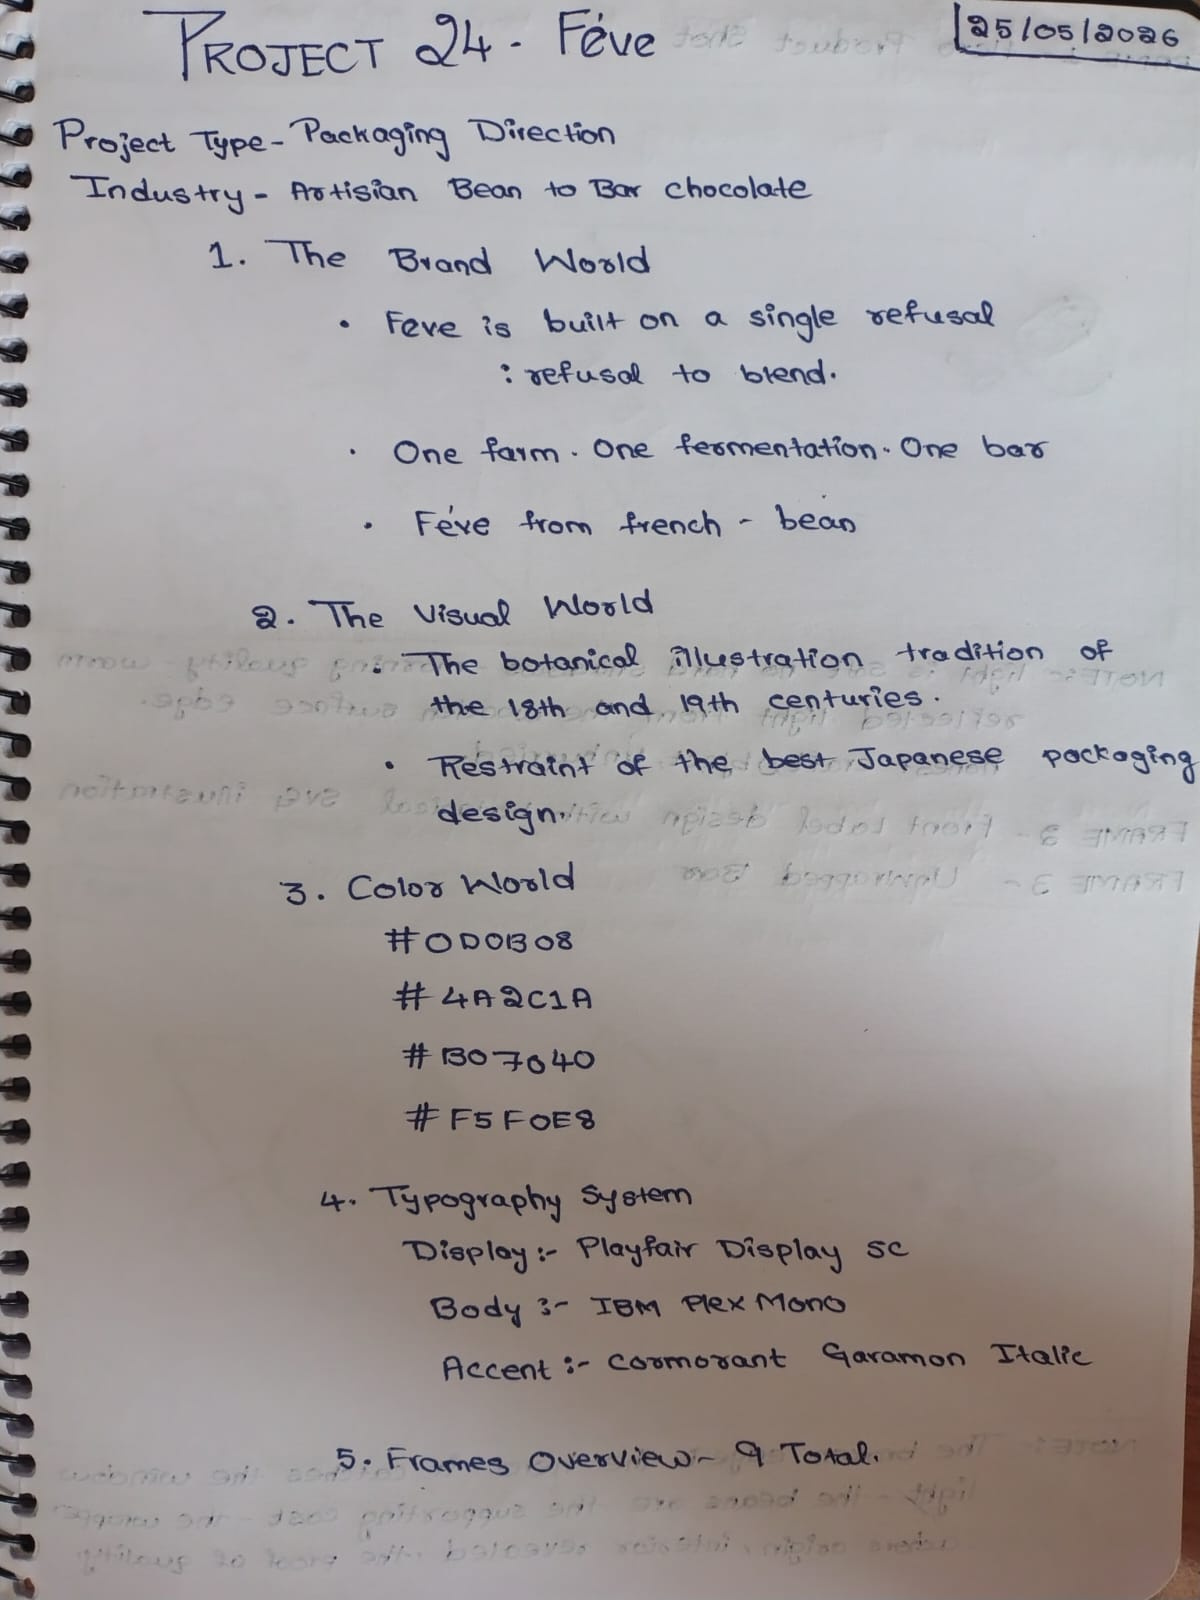 PROJECT 24 - Féve
25/05/2026
Project Type - Packaging Direction
Industry - Artisian Bean to Bar chocolate
1. The Brand World
• Feve is built on a single refusal
: refusal to blend.
• One farm. One fermentation. One bar
• Féve from french - bean
2. The Visual World
• The botanical illustration tradition of
the 18th and 19th centuries.
• Restraint of the best Japanese packaging
design.
3. Color World
#0D0B08
#4A2C1A
#B07040
#F5F0E8
4. Typography System
Display :- Playfair Display SC
Body :- IBM Plex Mono
Accent :- Cormorant Garamon Italic
5. Frames Overview - 9 Total.